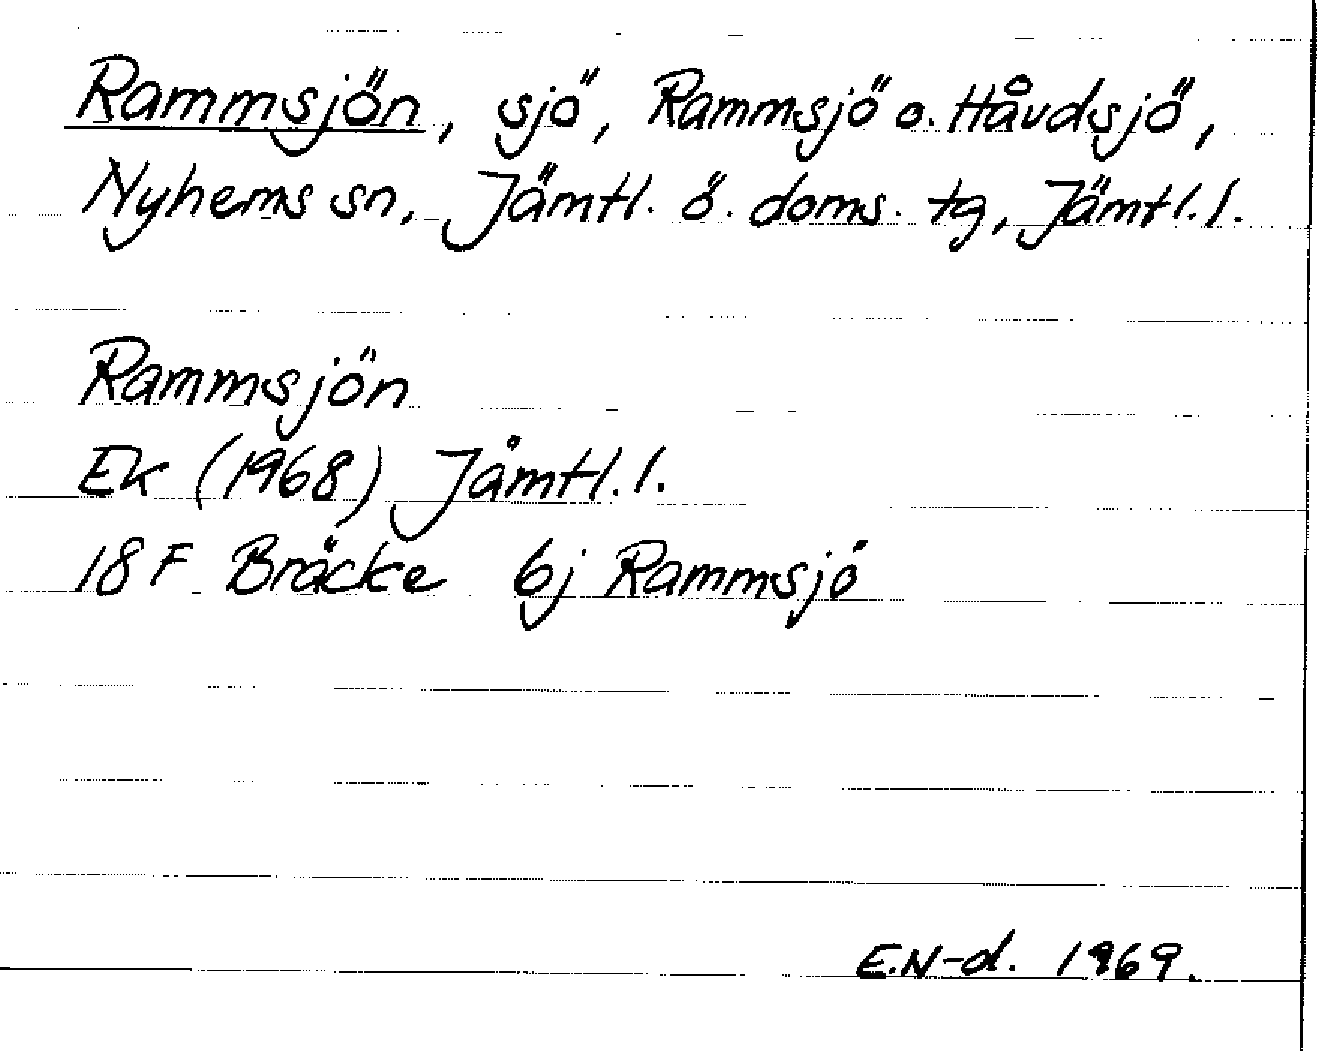 Rammsjön, sjö, Rammsjö o. Håvdsjö,
Nyhems sn, Jämtl. ö. doms. tg, Jämtl. l.
Rammsjön
Ek (1968) Jämtl. l.
18 F Bräcke 6j Rammsjö
E.N-d. 1969.